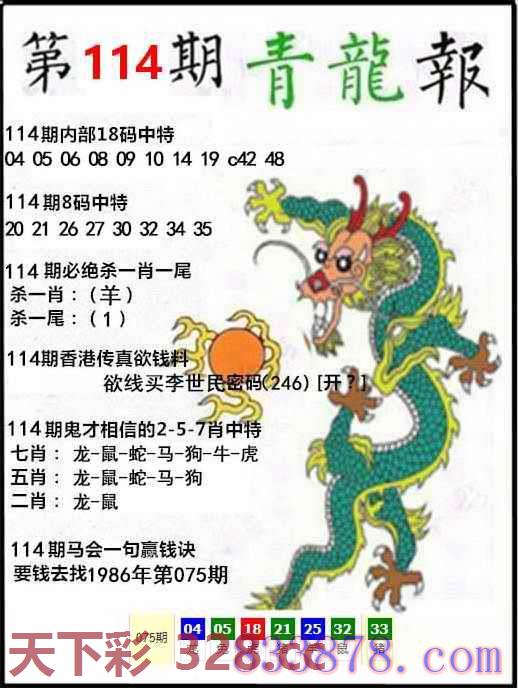 第114期 青龍報
114期内部18码中特
04 05 06 08 09 10 14 19 c42 48
114期8码中特
20 21 26 27 30 32 34 35
114期必绝杀一肖一尾
杀一肖：（羊）
杀一尾：（1）
114期香港传真欲钱料
欲线买李世民密码(246) [开？]
114期鬼才相信的2-5-7肖中特
七肖： 龙-鼠-蛇-马-狗-牛-虎
五肖： 龙-鼠-蛇-马-狗
二肖： 龙-鼠
114期马会一句赢钱诀
要钱去找1986年第075期
075期 04 05 18 21 25 32 33
龙 兔 虎 猪 羊 鼠 猪
天下彩 3283.cc
32833878.com